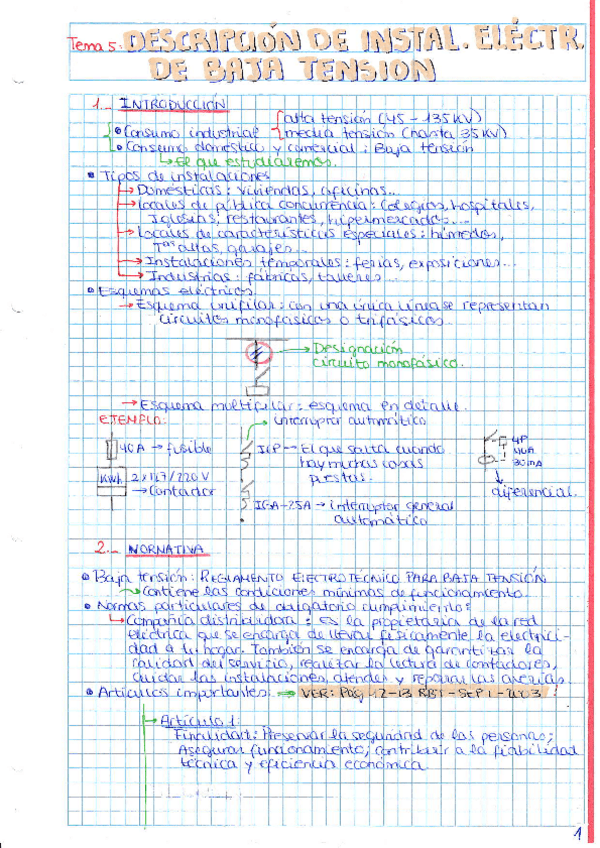 Tema 5: DESCRIPCIÓN DE INSTAL. ELÉCTR.
DE BAJA TENSION
1.- INTRODUCCIÓN
alta tensión (45 - 135 KV)
Consumo industrial media tensión (hasta 35 KV)
Consumo doméstico y comercial: Baja tensión
El que estudiaremos.
Tipos de instalaciones
Domésticas: viviendas, oficinas...
Locales de pública concurrencia: Colegios, hospitales,
Iglesias, restaurantes, hipermercados...
Locales de características especiales: húmedos,
Tas altas, garajes...
Instalaciones temporales: ferias, exposiciones...
Industrias: fábricas, talleres...
Esquemas eléctricos.
Esquema unifilar: con una única línea se representan
circuitos monofásicos o trifásicos.
Designación
circuito monofásico.
Esquema multifilar: esquema en detalle.
EJEMPLO: interruptor automático
40A → fusible ICP -- El que salta cuando 4P
hay muchas cosas 40A
30mA
KWh 2x147/220V puestas.
→ Contador diferencial.
IGA-25A → interruptor general
automático
2.- NORMATIVA
Baja tensión: REGLAMENTO ELECTROTÉCNICO PARA BAJA TENSIÓN
Contiene las condiciones mínimas de funcionamiento.
Normas particulares de obligatorio cumplimiento:
Compañía distribuidora: Es la propietaria de la red
eléctrica que se encarga de llevar físicamente la electrici-
dad a tu hogar. También se encarga de garantizar la
calidad del servicio, realizar la lectura de contadores,
cuidar las instalaciones, atender y reparar las averías.
Artículos importantes: ⇒ VER: Pág 12-13 RBT-SEPT-2003
Artículo 1:
Finalidad: Preservar la seguridad de las personas;
Asegurar funcionamiento; contribuir a la fiabilidad
técnica y eficiencia económica.
1